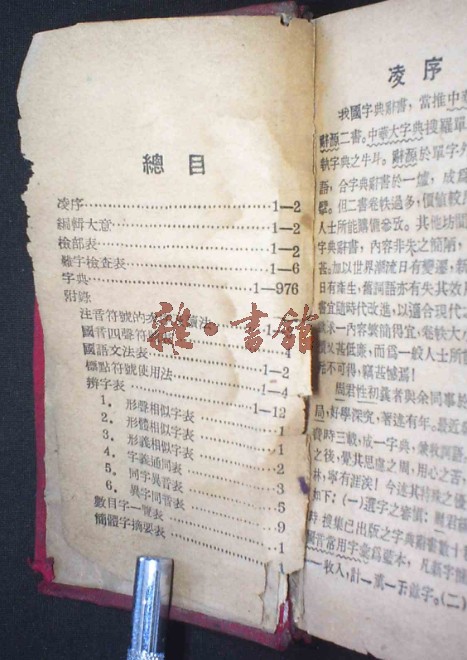 總目
凌序 1—2
編輯大意 1—2
檢部表 1—2
難字檢查表 1—6
字典 1—976
附錄
注音符號的 法
國音四聲符
國語文法表 1—2
標點符號使用法 1—4
辨字表 1—12
1. 形聲相似字表 1
2. 形體相似字表 1
3. 形義相似字表 2
4. 字義通同表 3
5. 同字異音表 5
6. 異字同音表 9
數目字一覽表 1
簡體字摘要表 1
雜·書館
凌序
我國字典辭書，當推中華
辭源二書。中華大字典搜羅單
執字典之牛斗。辭源於單字外
語，合字典辭書於一爐，成爲
擊。但二書卷帙過多，價値較
人士所能購備參攷。其他坊間
字典辭書，內容非失之簡陋，
甚。加以世界潮流日有變遷，新
日有產生，舊詞語亦有失其效
書宜隨時代改進，以適合現代
欲求一內容繁簡得宜，卷帙大
價又甚低廉，而爲一般人士所
不可得，竊甚憾焉！
周君性初義者與余同事於
局，好學深究，著述有年。最近
費時三載，成一字典，兼收詞語
之後，覺其思慮之周，用心之苦
林，寧有涯涘！今述其特殊之優
如下：(一)選字之審愼：周君
時搜集已出版之字典辭書數十
國音常用字彙爲藍本，凡新字
一收入，計一萬一千餘字。(二)